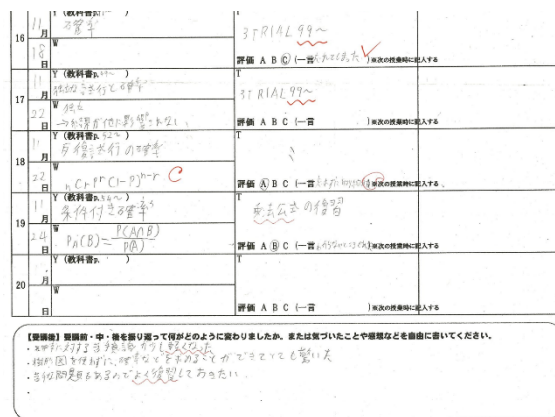 16
11
月
18
日
Y (教科書p.
確率
W
3TRIAL 99~
評価 A B C (一言 )※次の授業時に記入する
17
11
月
22
日
Y (教科書p.
独立試行と確率
W 独立
→結果が他に影響されない
T
3TRIAL 99~
評価 A B C (一言 )※次の授業時に記入する
18
11
月
22
日
Y (教科書p.52~
反復試行の確率
W
nCrP^r(1-P)^n-r
T
評価 A B C (一言 )※次の授業時に記入する
19
11
月
24
日
Y (教科書p.
条件付き確率
W
PA(B)=P(A∩B)/P(A)
T
乗法公式の復習
評価 A B C (一言 )※次の授業時に記入する
20
月
日
Y (教科書p.
W
T
評価 A B C (一言 )※次の授業時に記入する
【受講後】受講前・中・後を振り返って何がどのように変わりましたか。または気づいたことや感想などを自由に書いてください。
・ に対する が少し軽くなった
・樹形図を使わずに、確率などを求めることができてとても驚いた
・ 問題もあるのでよく復習しておきたい.